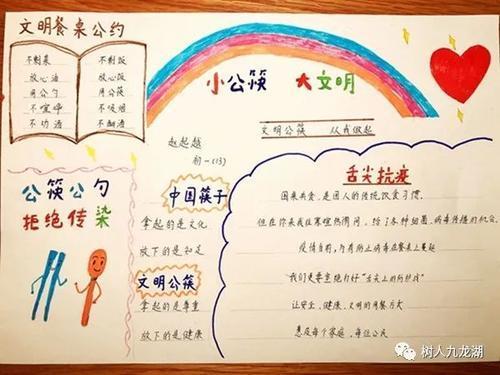 文明餐桌公约
不剩菜
放心油
用公勺
不喧哗
不劝酒
不剩饭
放心饭
用公筷
不吸烟
不酗酒
小公筷 大文明
文明公筷 从我做起
赵起越
初一(13)
公筷公勺
拒绝传染
中国筷子
拿起的是文化
放下的是知足
文明公筷
拿起的是尊重
放下的是健康
舌尖抗疫
围桌共食,是国人的传统饮食习惯.
但在你来我往寒暄热闹间,给了各种细菌、病毒传播的机会.
疫情当前,与有防止病毒在餐桌上蔓延
我们更要坚决打好"舌尖上的防护战"
让安全、健康、文明的用餐方式
惠及每个家庭、每位公民
树人九龙湖